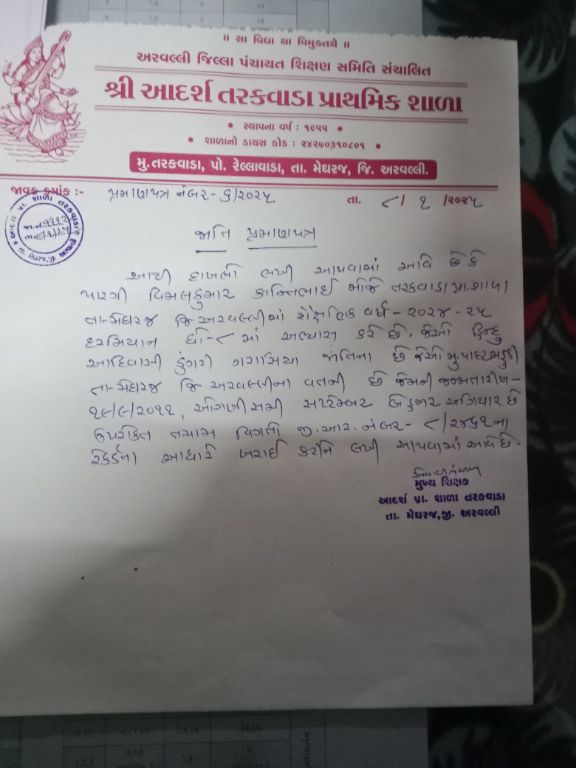 ॥ સા વિદ્યા યા વિમુક્તયે ॥
અરવલ્લી જિલ્લા પંચાયત શિક્ષણ સમિતિ સંચાલિત
શ્રી આદર્શ તરકવાડા પ્રાથમિક શાળા
• સ્થાપના વર્ષ : ૧૯૫૫ •
• શાળાનો ડાયસ કોડ : ૨૪૨૭૦૩૧૦૮૦૧ •
મુ.તરકવાડા, પો. રેલ્લાવાડા, તા. મેઘરજ, જિ. અરવલ્લી.
જાવક ક્રમાંક :- પ્રમાણપત્ર નંબર- ૬/૨૦૨૫ તા. ૮/ ૧ /૨૦૨૫
જાતિ પ્રમાણપત્ર
આથી દાખલો લખી આપવામાં આવે છે કે
પારગી વિમલકુમાર કાન્તિભાઈ જેઓ તરકવાડા પ્રા.શાળા
તા-મેઘરજ જિ-અરવલ્લીમાં શૈક્ષણિક વર્ષ - ૨૦૨૪ - ૨૫
દરમિયાન ધો-૮ માં અભ્યાસ કરે છે. જેઓ હિન્દુ
આદિવાસી ડુંગરી ગરાસિયા જાતિના છે જેઓ મુ.પાદરમહુડી
તા-મેઘરજ જિ-અરવલ્લીના વતની છે જેમની જન્મતારીખ-
૧૯/૯/૨૦૧૧, ઓગણીસમી સપ્ટેમ્બર બે હજાર અગિયાર છે
ઉપરોક્ત તમામ વિગતો જી.આર.નંબર- ૮/૨૪૬૧ના
રેકર્ડના આધારે ખરાઈ કરીને લખી આપવામાં આવે છે.
મુખ્ય શિક્ષક
આદર્શ પ્રા. શાળા તરકવાડા
તા. મેઘરજ,જી. અરવલ્લી